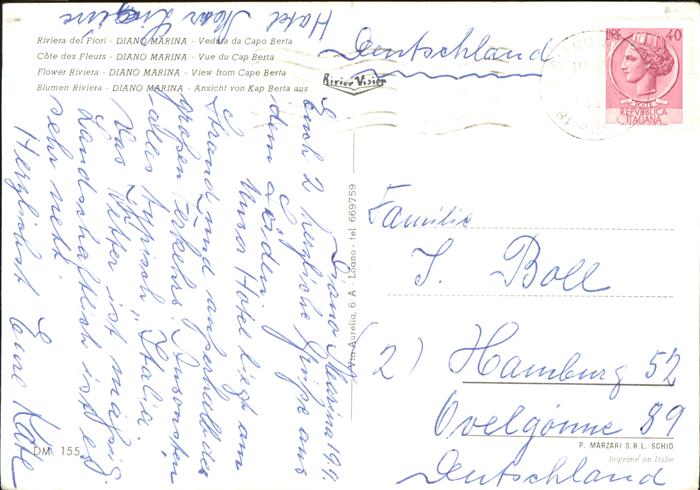 Hotel Mar Ligure
Riviera dei Fiori - DIANO MARINA - Veduta da Capo Berta
Côte des Fleurs - DIANO MARINA - Vue du Cap Berta
Flower Riviera - DIANO MARINA - View from Cape Berta
Blumen Riviera - DIANO MARINA - Ansicht von Kap Berta aus
Rivier Vision
Deutschland
LIRE 40
REPVBBLICA
ITALIANA
Diano Marina 19.9.
Euch 2 herzliche Grüße aus
dem Süden.
Unser Hotel liegt am
Strand und außerhalb des
großen Verkehrs. Ansonsten
alles typisch "Italia".
Das Wetter ist mäßig.
Landschaftlich ist es
sehr nett.
Herzlichst Eure Käte
Via Aurelia, 6 A - Loano - tel. 669759
Familie
J. Boll
(2) Hamburg 52
Ovelgönne 39
Deutschland
P. MARZARI S.R.L. - SCHIO
Imprimé en Italie
DM. 155